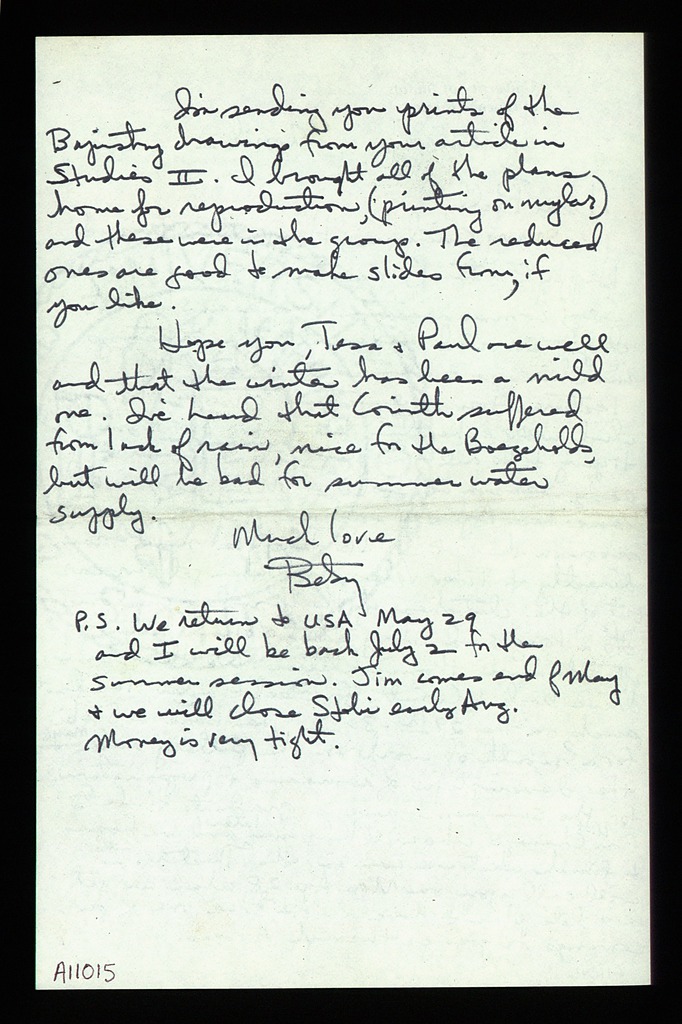 I'm sending you prints of the
drawings from your article in
Studies II. I brought all of the plans
home for reproduction, (printing on mylar)
and these were in the group. The reduced
ones are good to make slides from, if
you like.
Hope you, Tess + Paul are well
and that the winter has been a mild
one. I've heard that Corinth suffered
from lack of rain, nice for the Boegeholds,
but will be bad for summer water
supply.
Much love
Betsy
P.S. We return to USA May 29
and I will be back July 2 for the
summer session. Jim comes end of May
+ we will close Stobi early Aug.
Money is very tight.
A11015